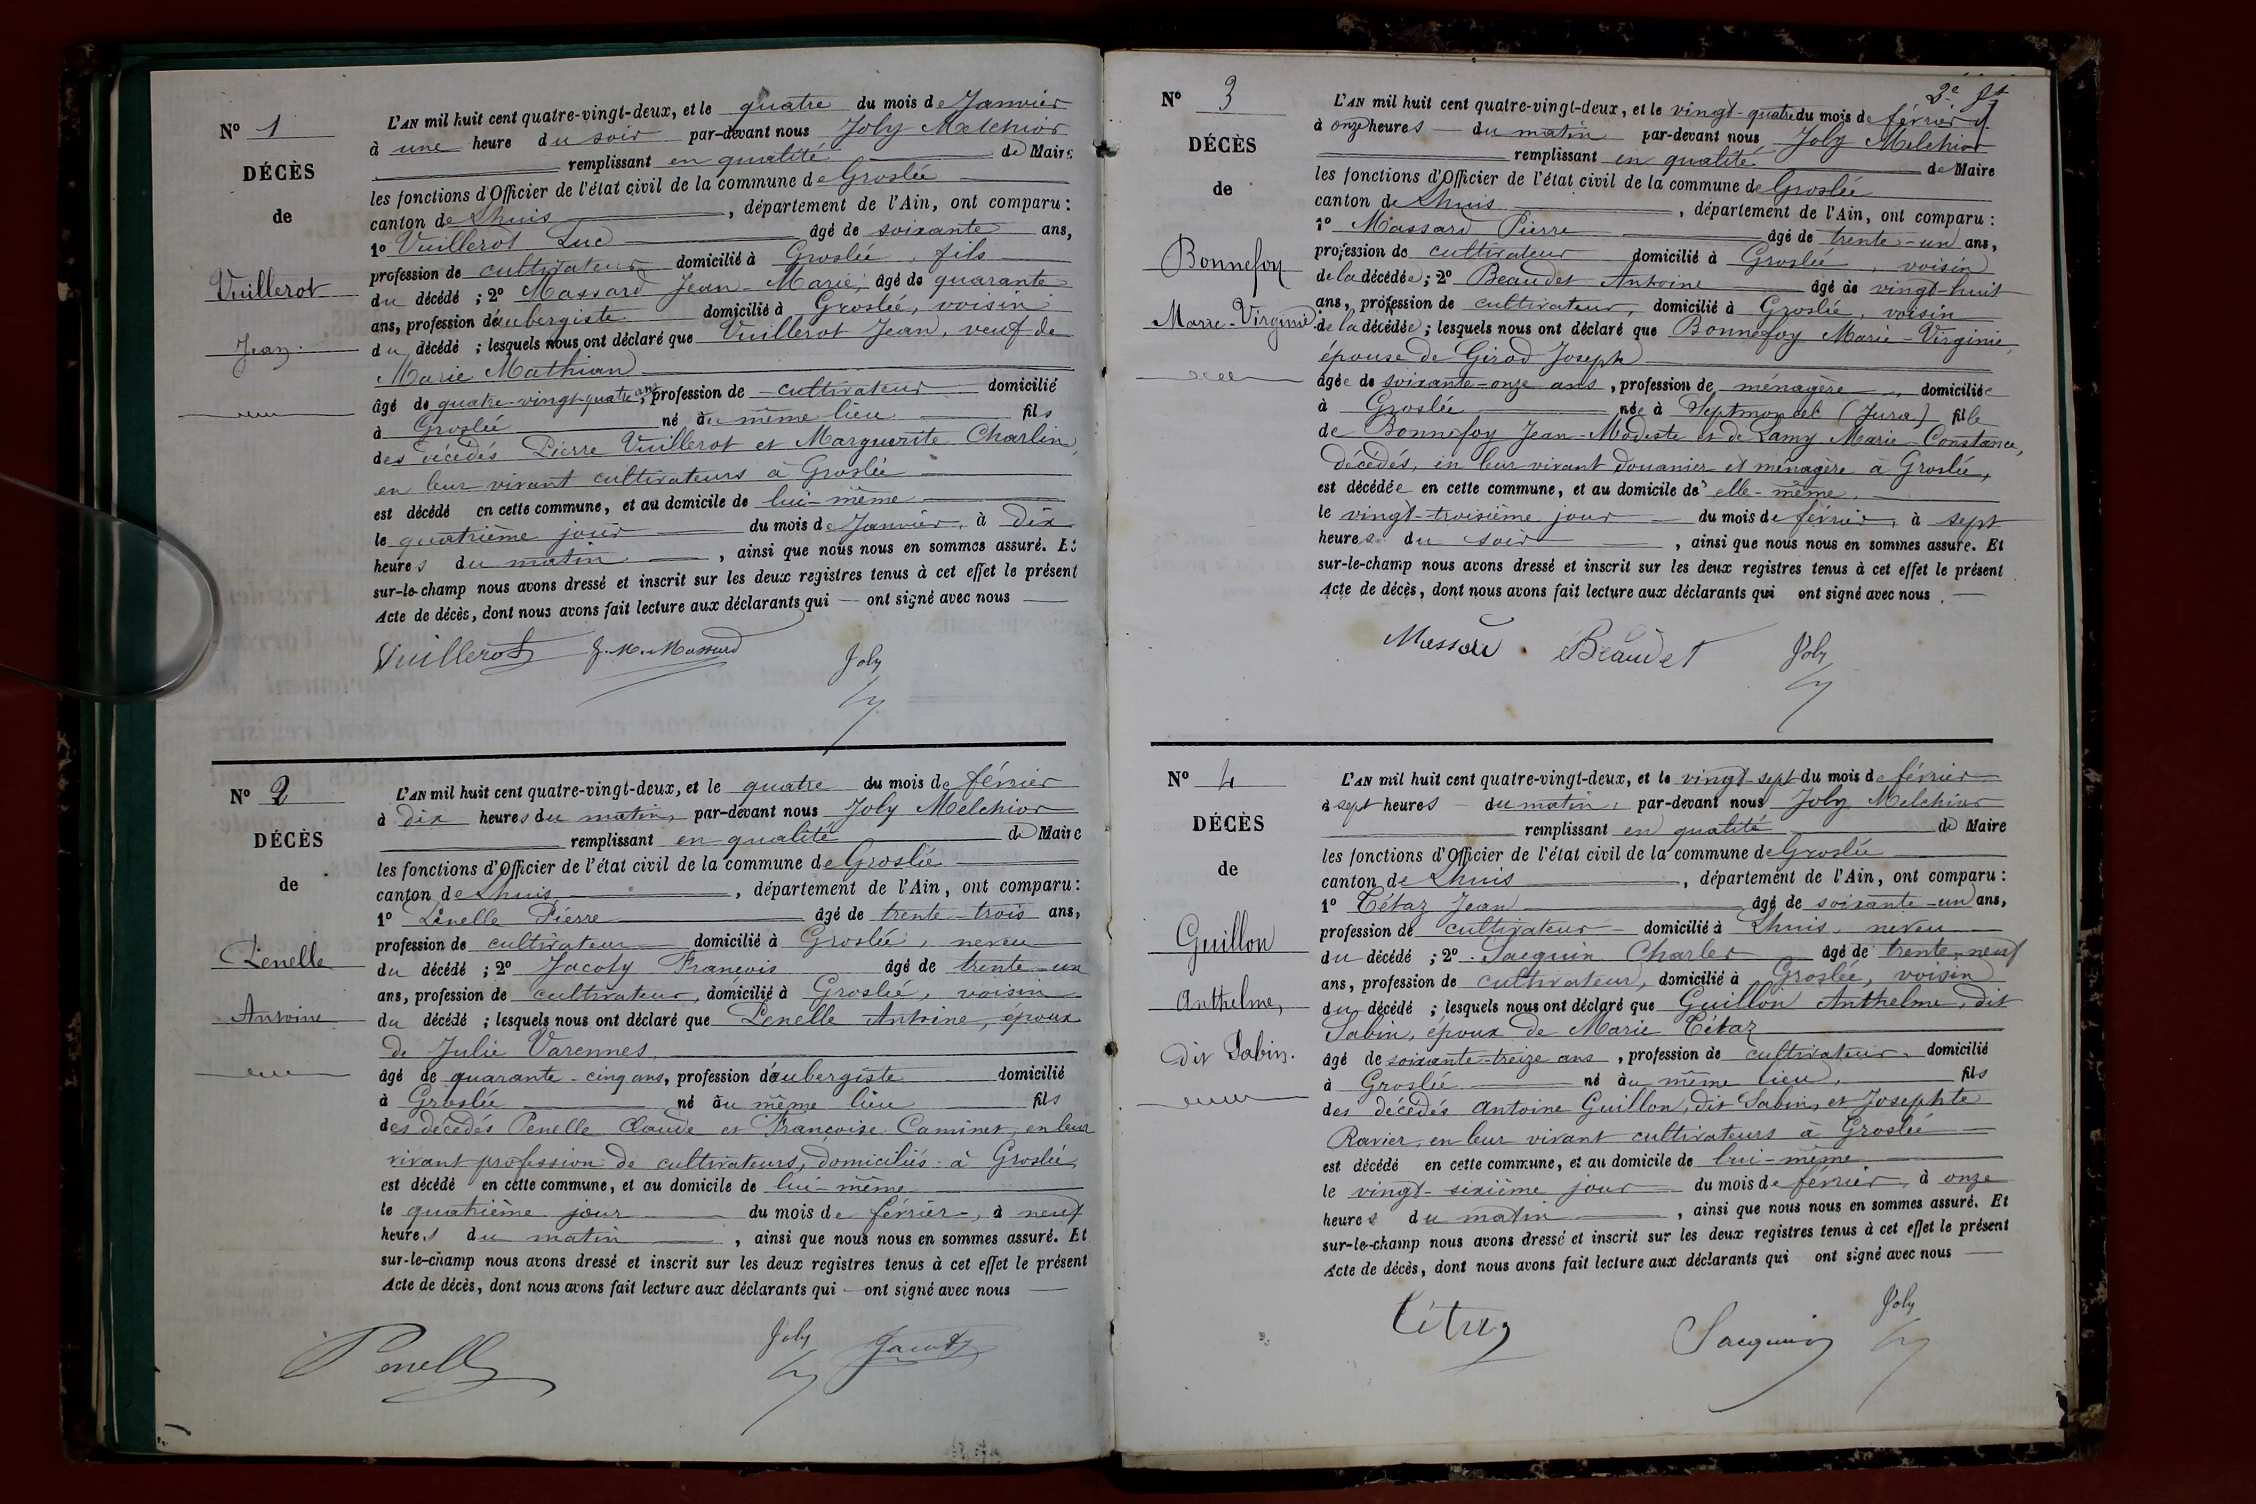 Nº 1
DÉCÈS
de
Vuillerot
Jean
L'AN mil huit cent quatre-vingt-deux, et le quatre du mois de Janvier
à une heure du soir par-devant nous Joly Melchior
remplissant en qualité de Maire
les fonctions d'Officier de l'état civil de la commune de Groslée
canton de Lhuis, département de l'Ain, ont comparu :
1º Vuillerot Luc âgé de soixante ans,
profession de cultivateur domicilié à Groslée, fils
du décédé ; 2º Massard Jean-Marie, âgé de quarante
ans, profession d'aubergiste domicilié à Groslée, voisin
du décédé ; lesquels nous ont déclaré que Vuillerot Jean, veuf de
Marie Mathian
âgé de quatre-vingt-quatre ans, profession de cultivateur domicilié
à Groslée né au même lieu fils
des décédés Pierre Vuillerot et Marguerite Charlin,
en leur vivant cultivateurs à Groslée
est décédé en cette commune, et au domicile de lui-même
le quatrième jour du mois de Janvier, à dix
heures du matin, ainsi que nous nous en sommes assuré. Et
sur-le-champ nous avons dressé et inscrit sur les deux registres tenus à cet effet le présent
Acte de décès, dont nous avons fait lecture aux déclarants qui ont signé avec nous
Vuillerot J. M. Massard Joly
Nº 2
DÉCÈS
de
Penelle
Antoine
L'AN mil huit cent quatre-vingt-deux, et le quatre du mois de février
à dix heures du matin, par-devant nous Joly Melchior
remplissant en qualité de Maire
les fonctions d'Officier de l'état civil de la commune de Groslée
canton de Lhuis, département de l'Ain, ont comparu :
1º Penelle Pierre âgé de trente-trois ans,
profession de cultivateur domicilié à Groslée, neveu
du décédé ; 2º Jacoty François âgé de trente-un
ans, profession de cultivateur, domicilié à Groslée, voisin
du décédé ; lesquels nous ont déclaré que Penelle Antoine, époux
de Julie Varennes,
âgé de quarante-cinq ans, profession d'aubergiste domicilié
à Groslée né au même lieu fils
des décédés Penelle Claude et Françoise Caminet, en leur
vivant profession de cultivateurs, domiciliés à Groslée,
est décédé en cette commune, et au domicile de lui-même
le quatrième jour du mois de février, à neuf
heures du matin, ainsi que nous nous en sommes assuré. Et
sur-le-champ nous avons dressé et inscrit sur les deux registres tenus à cet effet le présent
Acte de décès, dont nous avons fait lecture aux déclarants qui ont signé avec nous
Penelle Joly Jacoty
2e ft
Nº 3
DÉCÈS
de
Bonnefoy
Marie-Virginie
L'AN mil huit cent quatre-vingt-deux, et le vingt-quatre du mois de février
à onze heures du matin par-devant nous Joly Melchior
remplissant en qualité de Maire
les fonctions d'Officier de l'état civil de la commune de Groslée
canton de Lhuis, département de l'Ain, ont comparu :
1º Massard Pierre âgé de trente-un ans,
profession de cultivateur domicilié à Groslée, voisin
de la décédée ; 2º Beaudet Antoine âgé de vingt-huit
ans, profession de cultivateur, domicilié à Groslée, voisin
de la décédée ; lesquels nous ont déclaré que Bonnefoy Marie-Virginie,
épouse de Girod Joseph
âgée de soixante-onze ans, profession de ménagère, domiciliée
à Groslée, née à Septmoncel (Jura) fille
de Bonnefoy Jean-Modeste et de Lamy Marie-Constance,
décédés, en leur vivant douanier et ménagère à Groslée,
est décédée en cette commune, et au domicile de elle-même,
le vingt-troisième jour du mois de février, à sept
heures du soir, ainsi que nous nous en sommes assuré. Et
sur-le-champ nous avons dressé et inscrit sur les deux registres tenus à cet effet le présent
Acte de décès, dont nous avons fait lecture aux déclarants qui ont signé avec nous
Massard Beaudet Joly
Nº 4
DÉCÈS
de
Guillon
Anthelme,
dit Sabin.
L'AN mil huit cent quatre-vingt-deux, et le vingt-sept du mois de février
à sept heures du matin, par-devant nous Joly Melchior
remplissant en qualité de Maire
les fonctions d'Officier de l'état civil de la commune de Groslée
canton de Lhuis, département de l'Ain, ont comparu :
1º Tétaz Jean âgé de soixante-un ans,
profession de cultivateur domicilié à Lhuis, neveu
du décédé ; 2º Sacquin Charles âgé de trente-neuf
ans, profession de cultivateur, domicilié à Groslée, voisin
du décédé ; lesquels nous ont déclaré que Guillon Anthelme, dit
Sabin, époux de Marie Tétaz
âgé de soixante-treize ans, profession de cultivateur, domicilié
à Groslée né au même lieu, fils
des décédés Antoine Guillon, dit Sabin, et Josephte
Ravier, en leur vivant cultivateurs à Groslée
est décédé en cette commune, et au domicile de lui-même
le vingt-sixième jour du mois de février, à onze
heures du matin, ainsi que nous nous en sommes assuré. Et
sur-le-champ nous avons dressé et inscrit sur les deux registres tenus à cet effet le présent
Acte de décès, dont nous avons fait lecture aux déclarants qui ont signé avec nous
Tétaz Sacquin Joly